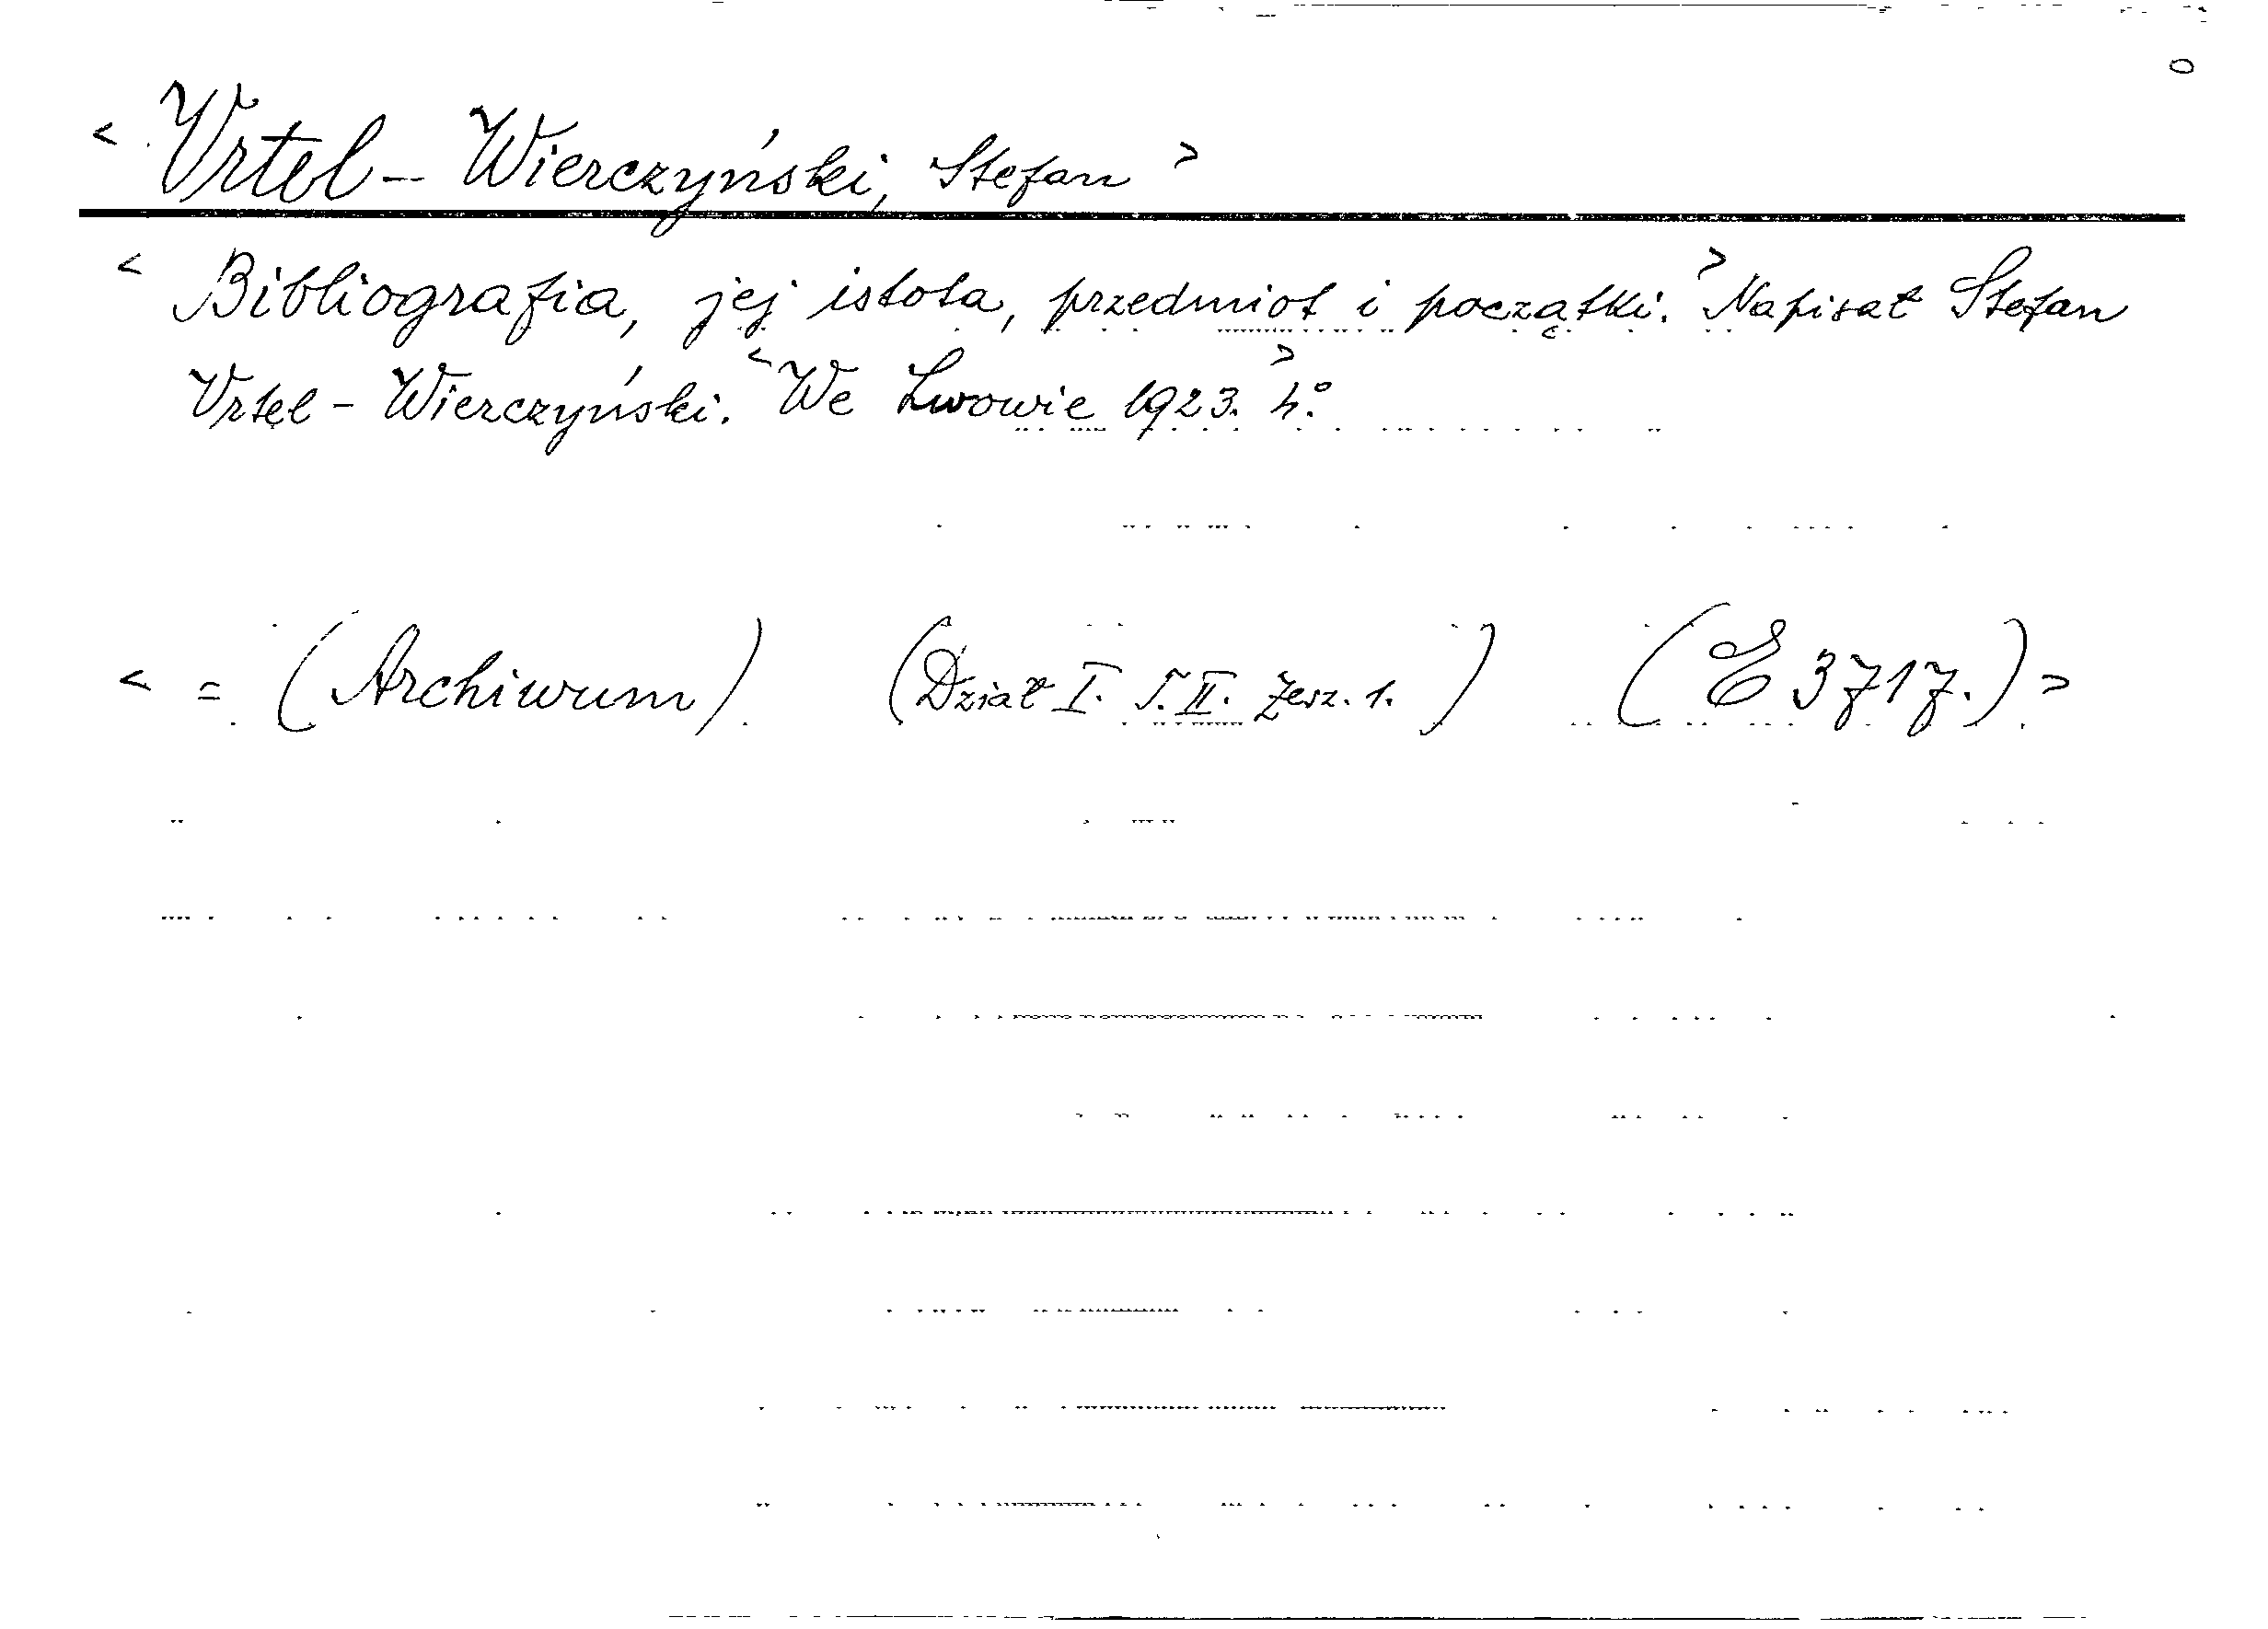 0
< Vrtel-Wierczyński, Stefan >
< Bibliografia, jej istota, przedmiot i początki. > Napisał Stefan
Vrtel-Wierczyński. < We Lwowie 1923. > 4°.
< = (Archiwum) (Dział I. T. II. Zesz. 1.) (E 3717.) >